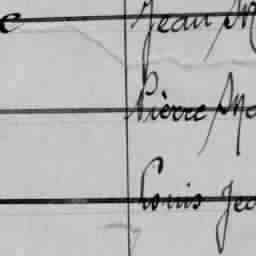 e Jean M
Pierre Ma
Louis Jea